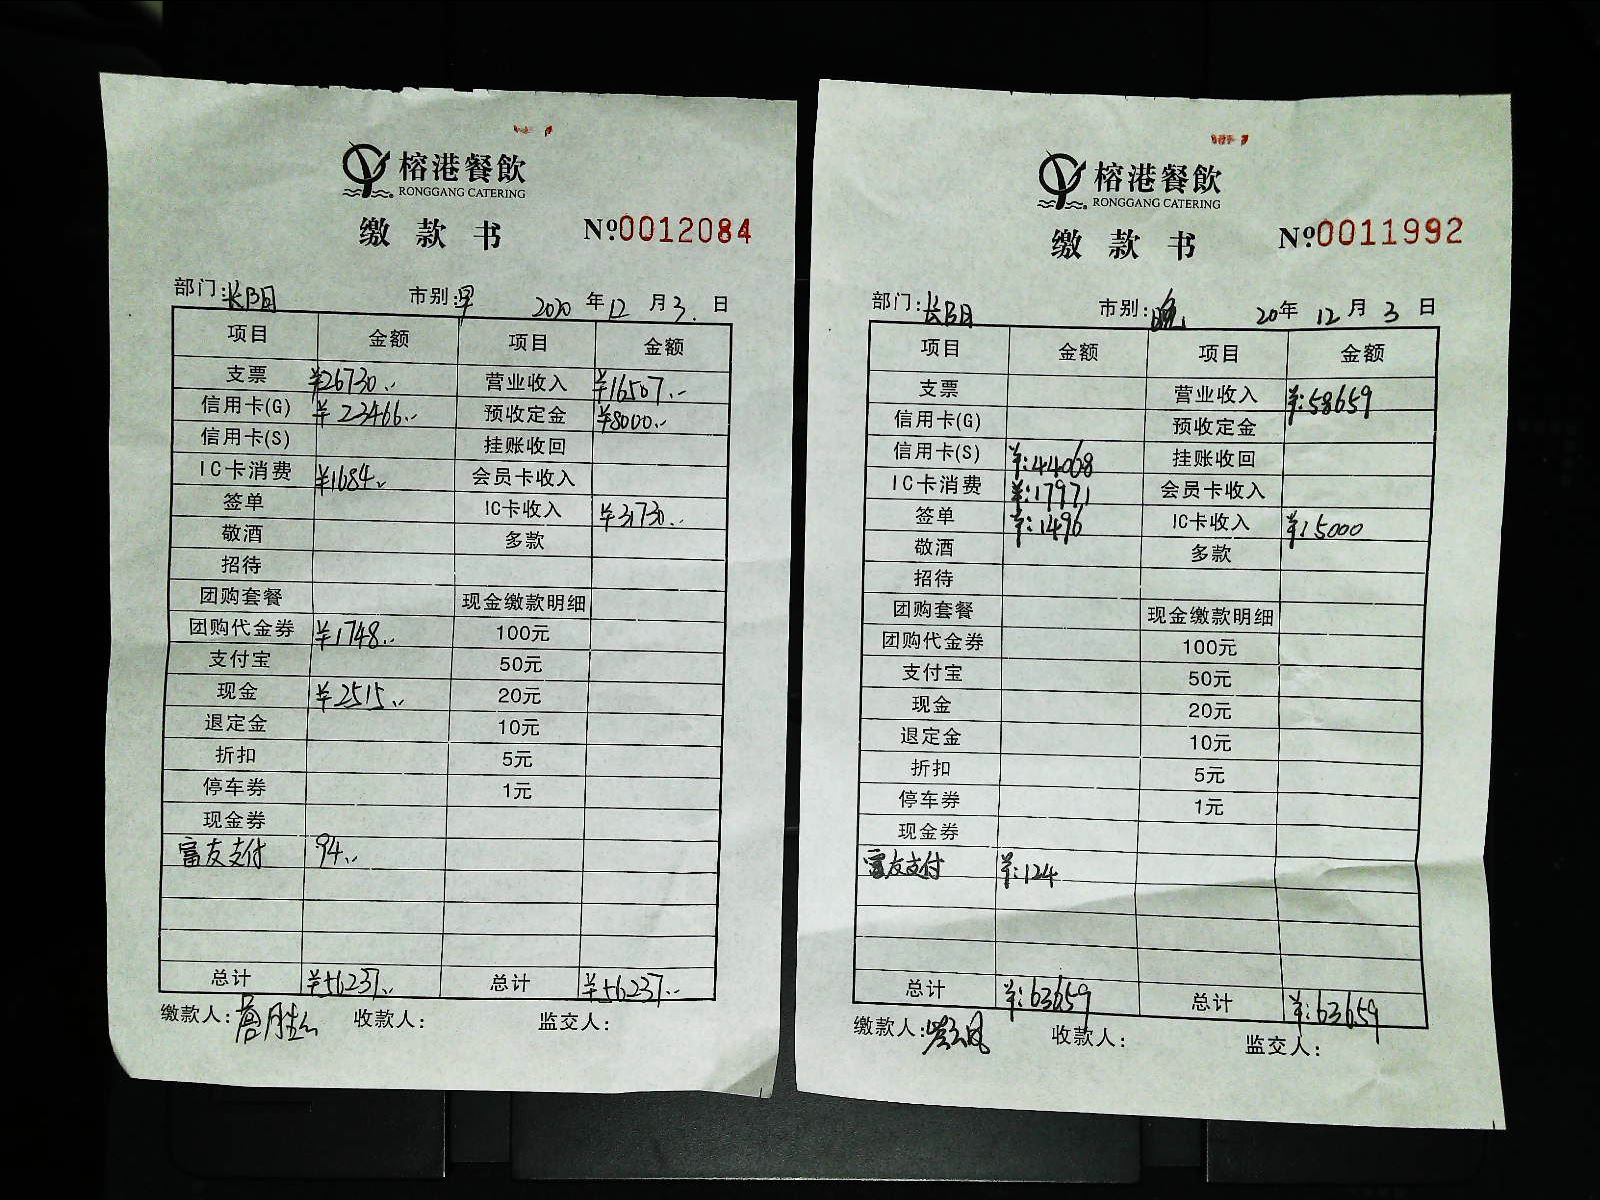 榕港餐飲
RONGGANG CATERING
缴款书 №0012084
部门:长阳 市别:早 2020年12月3日
项目 金额 项目 金额
支票 ¥26730.. 营业收入 ¥16507..
信用卡(G) ¥23466.. 预收定金 ¥8000..
信用卡(S) 挂账收回
IC卡消费 ¥1684.. 会员卡收入
签单 IC卡收入 ¥31730..
敬酒 多款
招待
团购套餐 现金缴款明细
团购代金券 ¥1748.. 100元
支付宝 50元
现金 ¥2515.. 20元
退定金 10元
折扣 5元
停车券 1元
现金券
富友支付 94..
总计 ¥56237.. 总计 ¥56237..
缴款人: 收款人: 监交人:
榕港餐飲
RONGGANG CATERING
缴款书 №0011992
部门:长阳 市别:晚 20年12月3日
项目 金额 项目 金额
支票 营业收入 ¥:58659
信用卡(G) 预收定金
信用卡(S) ¥:44068 挂账收回
IC卡消费 ¥:17971 会员卡收入
签单 ¥:1496 IC卡收入 ¥:5000
敬酒 多款
招待
团购套餐 现金缴款明细
团购代金券 100元
支付宝 50元
现金 20元
退定金 10元
折扣 5元
停车券 1元
现金券
富友支付 ¥:124
总计 ¥:63659 总计 ¥:63659
缴款人: 收款人: 监交人: